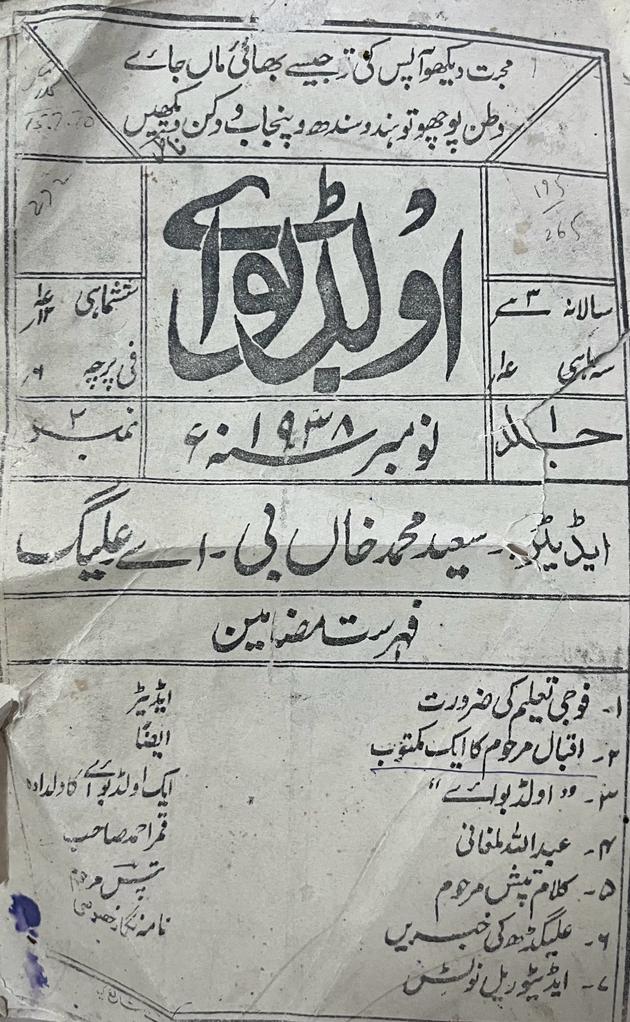 محبت دیکھو آپس کی تو جیسے بھائی ماں جائے
وطن پوچھو تو ہند و سندھ و پنجاب و دکن نکھیں
15.7.70
195
265
اولڈ بوائے
سالانہ ۳
سہ ماہی
ششماہی
فی پرچہ ۶
جلد ۱
نومبر سنہ ۱۹۳۸ء
نمبر ۲
ایڈیٹر۔ سعید محمد خاں بی۔اے علیگ
فہرست مضامین
۱۔ فوجی تعلیم کی ضرورت ایڈیٹر
۲۔ اقبال مرحوم کا ایک مکتوب ایضاً
۳۔ "اولڈ بوائے" ایک اولڈ بوائے کا ولدادہ
۴۔ عبداللہ لمغانی قمر احمد صاحب
۵۔ کلام تپش مرحوم تپش مرحوم
۶۔ علیگڑھ کی خبریں نامہ نگار خصوصی
۷۔ ایڈیٹوریل نوٹس